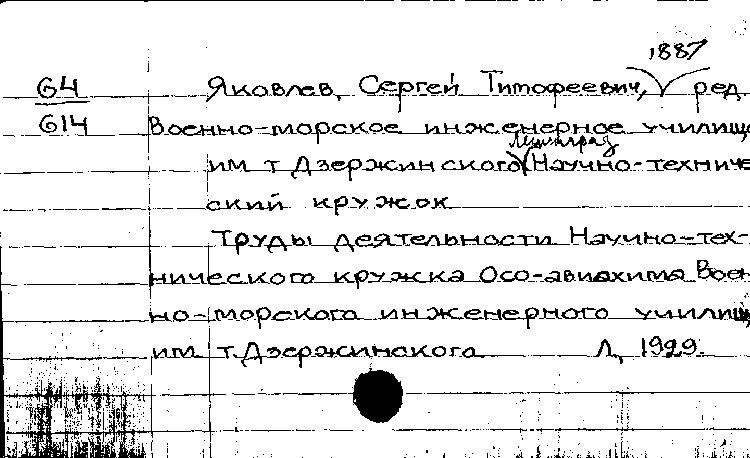 1887
G4 Яковлев, Сергей Тимофеевич, ред.
G14 Военно-морское инженерное училищ
Ленинград
им т Дзержинского (Научно-техниче
ский кружок
Труды деятельности Научно-тех-
нического кружка Осо-авиахима Воен
но-морского инженерного училищ
им т. Дзержинскога Л, 1929.